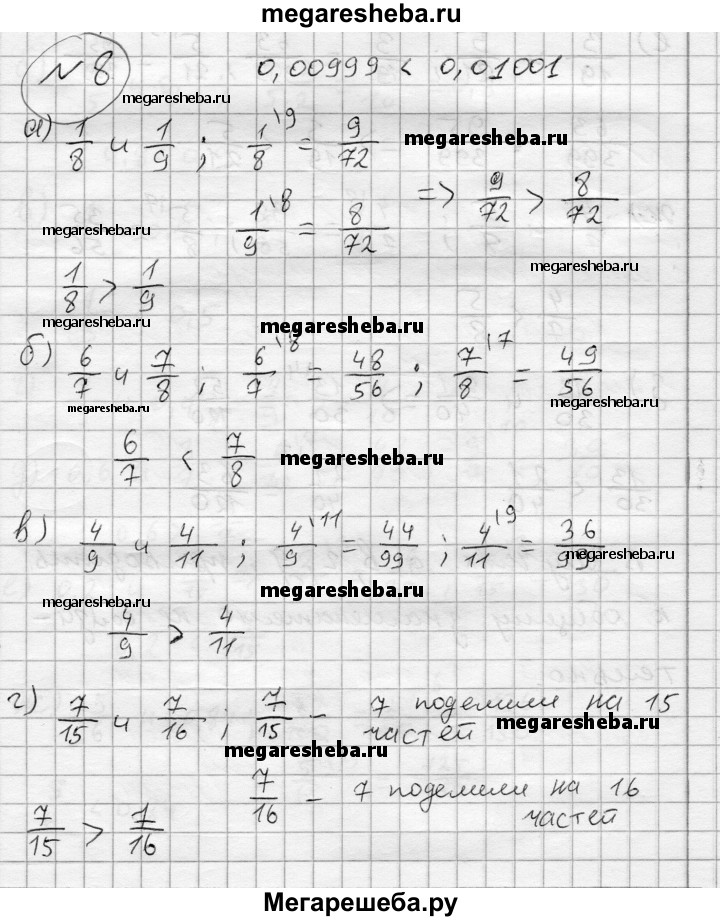 megaresheba.ru
№8 0,00999 < 0,01001
megaresheba.ru
а) 1/8 и 1/9 ; 1\9/8 = 9/72 megaresheba.ru
1\8/9 = 8/72 => 9/72 > 8/72
megaresheba.ru
megaresheba.ru
1/8 > 1/9
megaresheba.ru megaresheba.ru
б) 6/7 и 7/8 ; 6\8/7 = 48/56 ; 7\7/8 = 49/56
megaresheba.ru megaresheba.ru
6/7 < 7/8 megaresheba.ru
в) 4/9 и 4/11 ; 4\11/9 = 44/99 ; 4\9/11 = 36/99
megaresheba.ru
megaresheba.ru megaresheba.ru
4/9 > 4/11
г) 7/15 и 7/16 ; 7/15 – 7 поделили на 15
частей megaresheba.ru
megaresheba.ru
7/16 – 7 поделили на 16
частей
7/15 > 7/16
Мегарешеба.ру